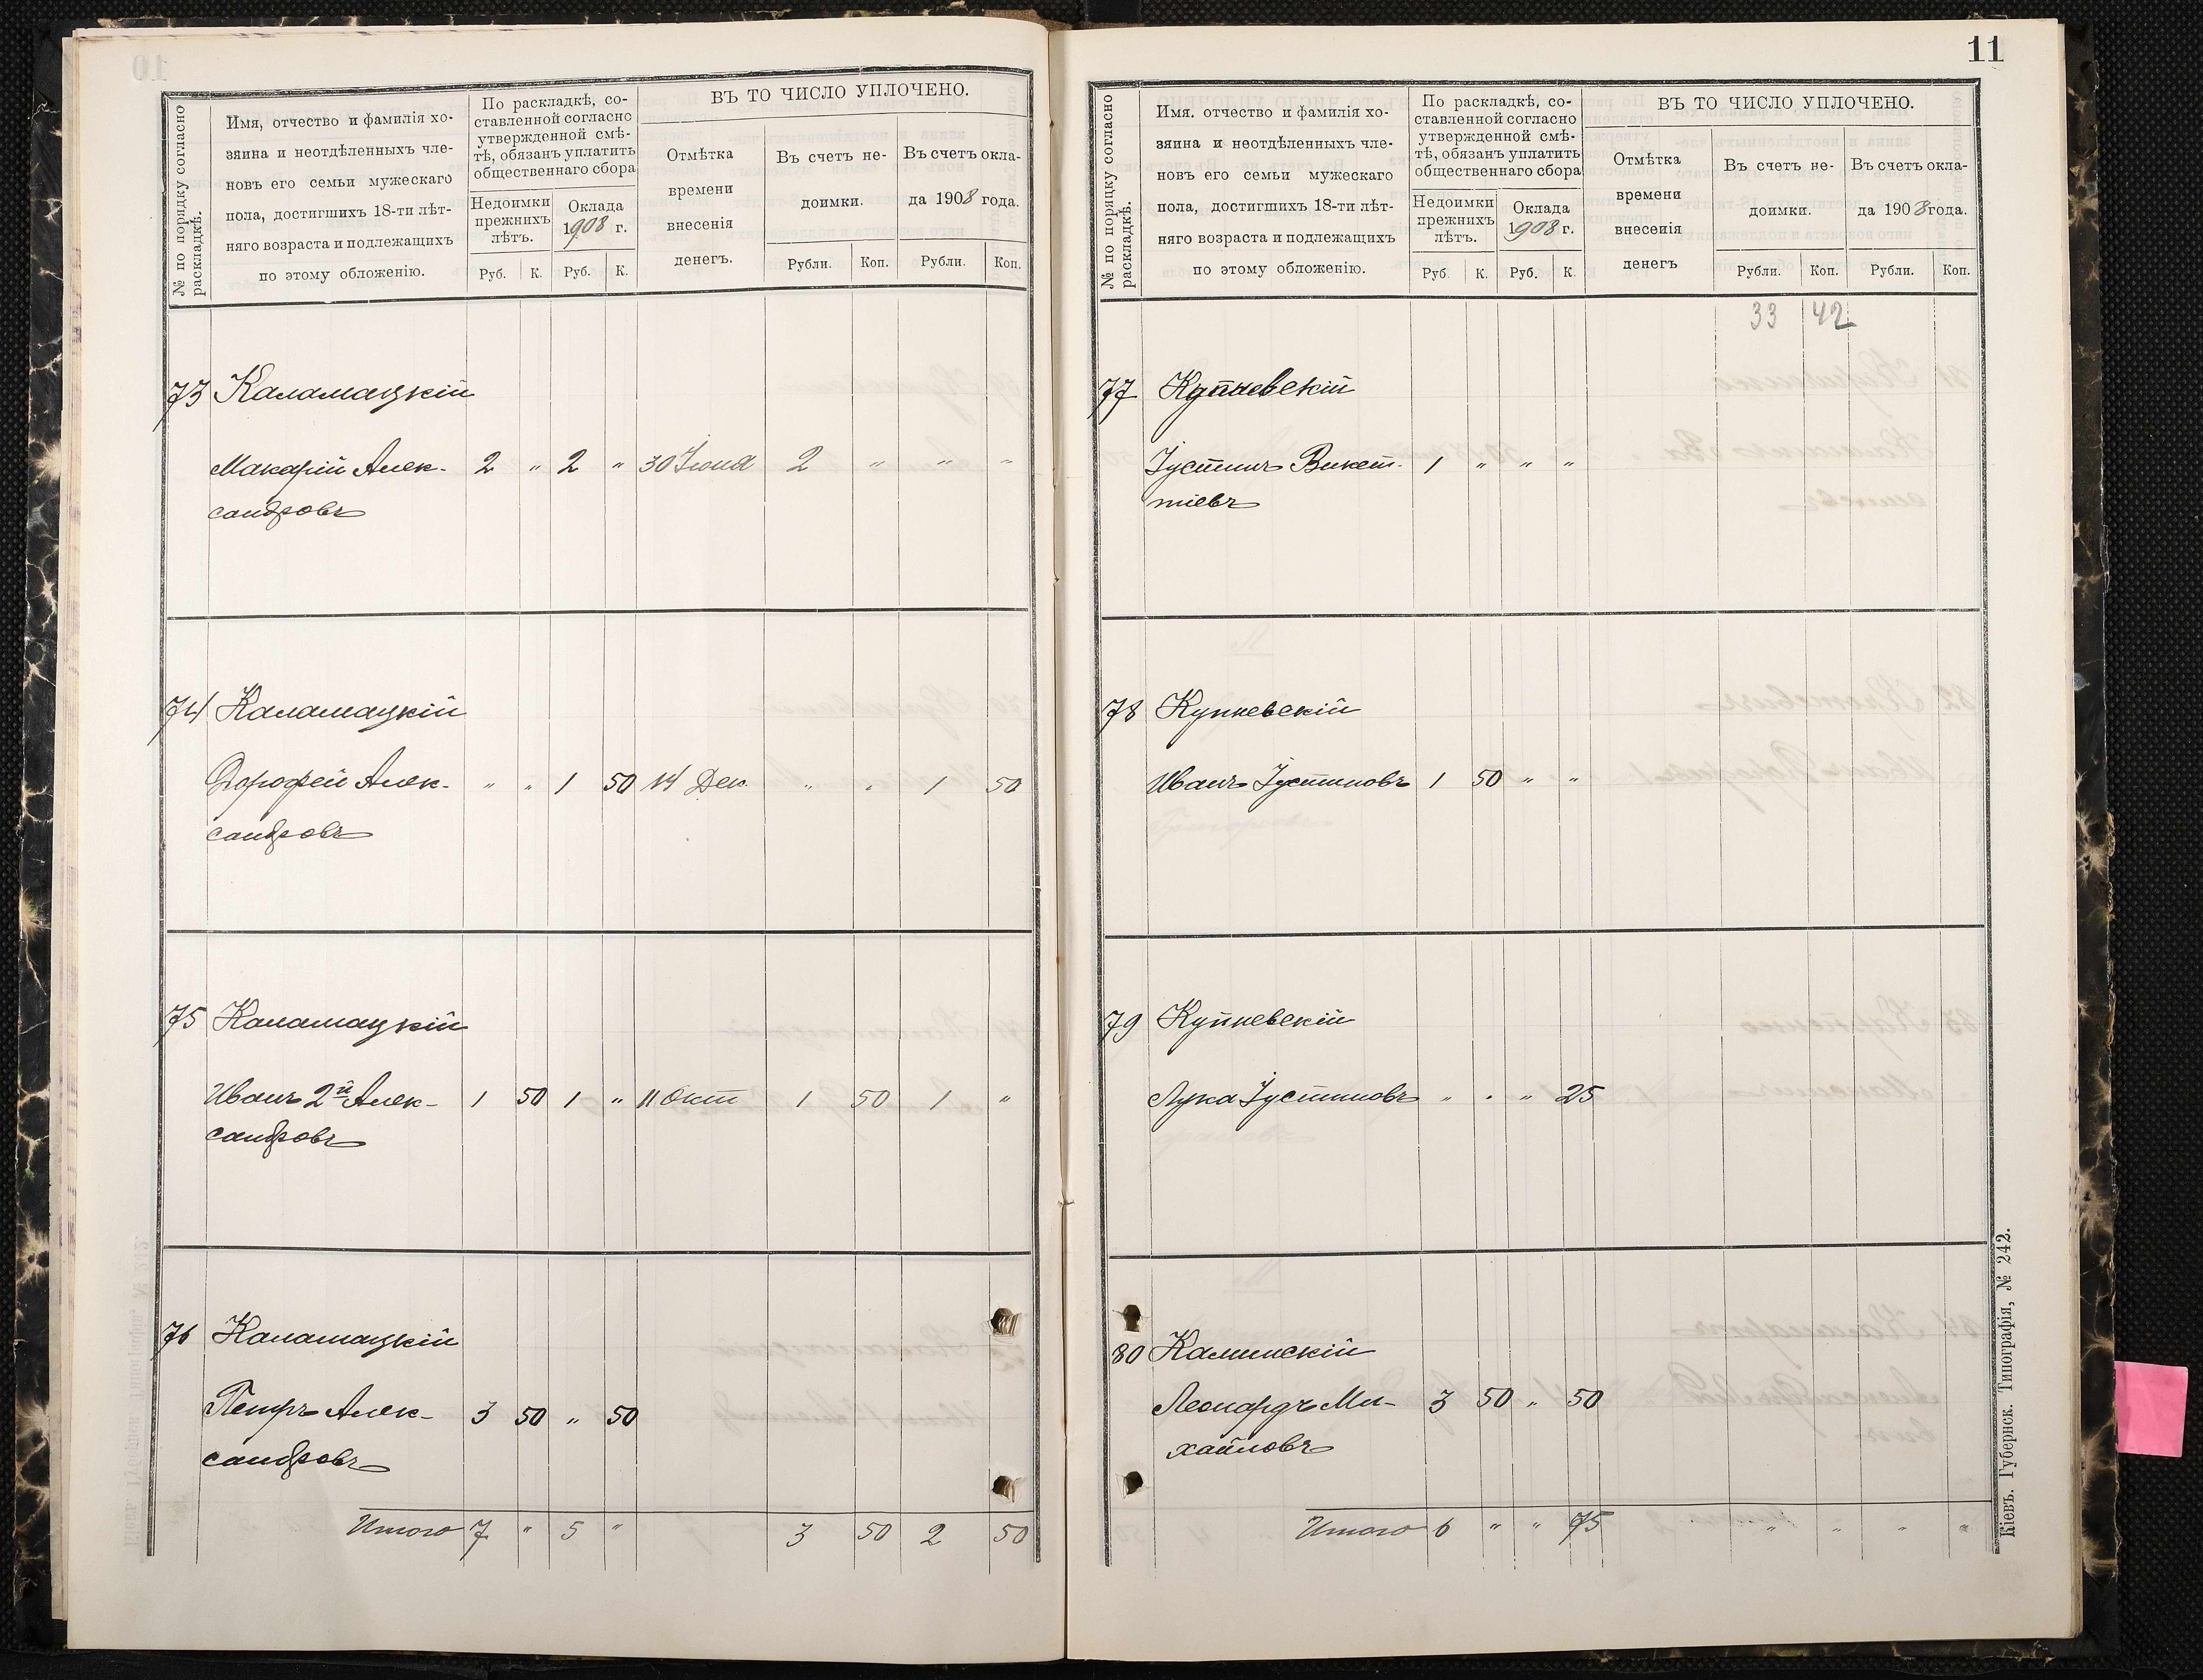 № по порядку согласно
раскладкѣ.
Имя, отчество и фамилія хо-
зяина и неотдѣленныхъ чле-
новъ его семьи мужескаго
пола, достигшихъ 18-ти лѣт-
няго возраста и подлежащихъ
по этому обложенію.
По раскладкѣ, со-
ставленной согласно
утвержденной смѣ-
тѣ, обязанъ уплатить
общественнаго сбора
Недоимки
прежнихъ
лѣтъ.
Оклада
1908 г.
Руб. К. Руб. К.
ВЪ ТО ЧИСЛО УПЛОЧЕНО.
Отмѣтка
времени
внесенія
денегъ.
Въ счетъ не-
доимки.
Въ счетъ окла-
да 1908 года.
Рубли. Коп. Рубли. Коп.
73 Каламацкій
Макарій Алек- 2 " 2 " 30 Іюня 2 " " "
сандровъ
74 Каламацкій
Дорофей Алек- " " 1 50 14 Дек. " " 1 50
сандровъ
75 Каламацкій
Иванъ 2й Алек- 1 50 1 " 11 Окт 1 50 1 "
сандровъ
76 Каламацкій
Петръ Алек- 3 50 " 50
сандровъ
Итого 7 " 5 " 3 50 2 50
11
№ по порядку согласно
раскладкѣ.
Имя. отчество и фамилія хо-
зяина и неотдѣленныхъ чле-
новъ его семьи мужескаго
пола, достигшихъ 18-ти лѣт-
няго возраста и подлежащихъ
по этому обложенію.
По раскладкѣ, со-
ставленной согласно
утвержденной смѣ-
тѣ, обязанъ уплатить
общественнаго сбора
Недоимки
прежнихъ
лѣтъ.
Оклада
1908 г.
Руб. К. Руб. К.
ВЪ ТО ЧИСЛО УПЛОЧЕНО.
Отмѣтка
времени
внесенія
денегъ
Въ счетъ не-
доимки.
Въ счетъ окла-
да 1908 года.
Рубли. Коп. Рубли. Коп.
33 42
77 Купневскій
Іустинъ Викен- 1 " " "
тіевъ
78 Купневскій
Иванъ Іустиновъ 1 50 " "
79 Купневскій
Лука Іустиновъ " " " 25
80 Калинскій
Леонардъ Ми- 3 50 " 50
хайловъ
Итого 6 " " 75 " " " "
Кіевъ. Губернск. Типографія, № 242.